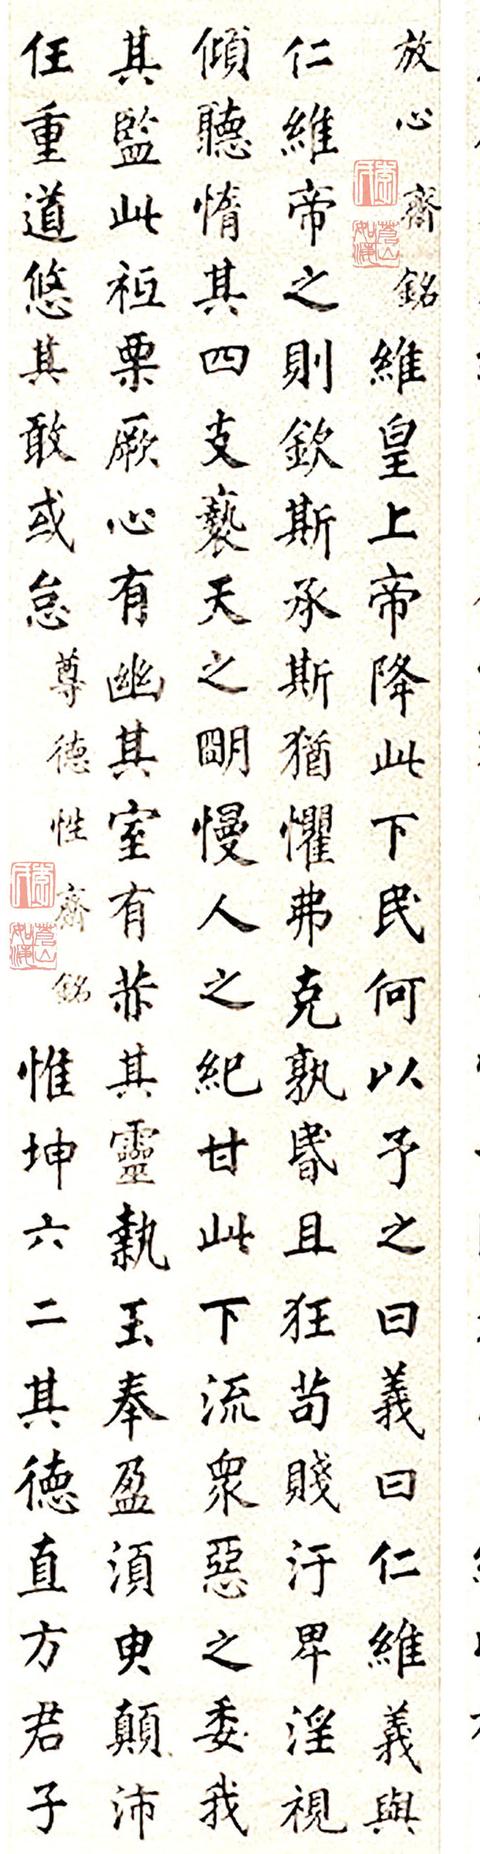 放心齋銘 維皇上帝降此下民何以予之曰義曰仁維義與
仁維帝之則欽斯承斯猶懼弗克孰昬且狂苟賤汙卑淫視
傾聽惰其四支褻天之明慢人之紀甘此下流衆惡之委我
其監此祗栗厥心有幽其室有恭其靈執玉奉盈須臾顛沛
任重道悠其敢或怠 尊德性齋銘 惟坤六二其德直方君子